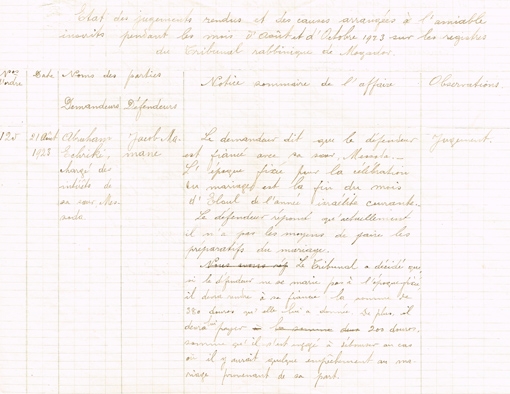 Etat des jugements rendus et des causes arrangées à l'amiable
inscrits pendant les mois d'Août et d'Octobre 1923 sur les registres
du Tribunal rabbinique de Mogador.
Nos d'ordre
Date
Noms des parties
Notice sommaire de l'affaire
Observations.
Demandeurs
Défendeurs
21 Août
1923
Abraham
chargé des
intérêts de
sa soeur Mes-
soda
Jacob Ma-
mane
Le demandeur dit que le défendeur
est fiancé avec sa soeur Messoda.
L'époque fixée pour la célébration
du mariage est la fin du mois
d'Eloul de l'année israélite courante.
Le défendeur répond qu'actuellement
il n'a pas les moyens de faire les
préparatifs du mariage.
Le Tribunal a décidé que
si le défendeur ne se marie pas à l'époque fixée
il devra rendre à sa fiancée la somme de
280 douros qu'elle lui a donnée. De plus il
devra payer la somme 200 douros,
somme qu'il s'est engagé à rembourser au cas
où il y aurait quelque empêchement au ma-
riage provenant de sa part.
Jugement.